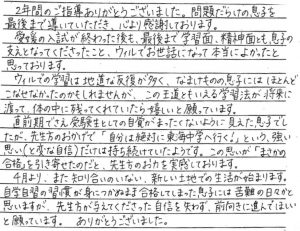 2年間のご指導ありがとうございました。問題だらけの息子を
最後まで導いていただき、心より感謝しております。
愛媛の入試が終わった後も、最後まで学習面、精神面とも息子の
支えとなってくださったこと、ウィルでお世話になって本当によかったと
思っております。
ウィルでの学習は地道な反復が多く、なまけものの息子にはほとんど
こなせなかったのかもしれませんが、この王道ともいえる学習法が将来に
渡って、体の中に残ってくれていたら嬉しいと願っています。
直前期でさえ受験生としての自覚がまったくないように見えた息子でし
たが、先生方のおかげで「自分は絶対に東海中学へ行く。」という、強い
思い(と変な自信)だけは持ち続けていたようです。この思いが「まさかの
合格」を引き寄せたのだと、先生方のお力を実感しております。
4月より、まだ知り合いのいない、新しい土地での生活が始まります。
自学自習の習慣が身につかぬまま合格してしまった息子には苦難の日々かと
思いますが、先生方が与えてくださった自信を失わず、前向きに進んでほしい
と願っています。ありがとうございました。